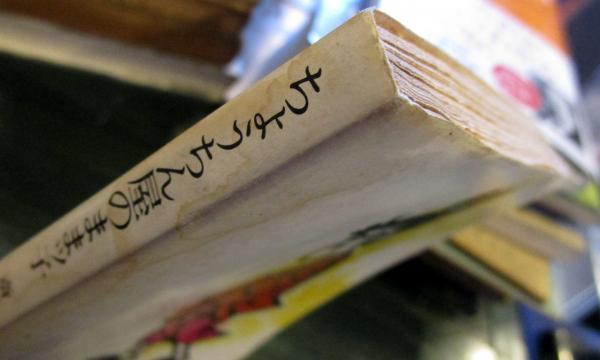 ちょうちん屋のままッ子